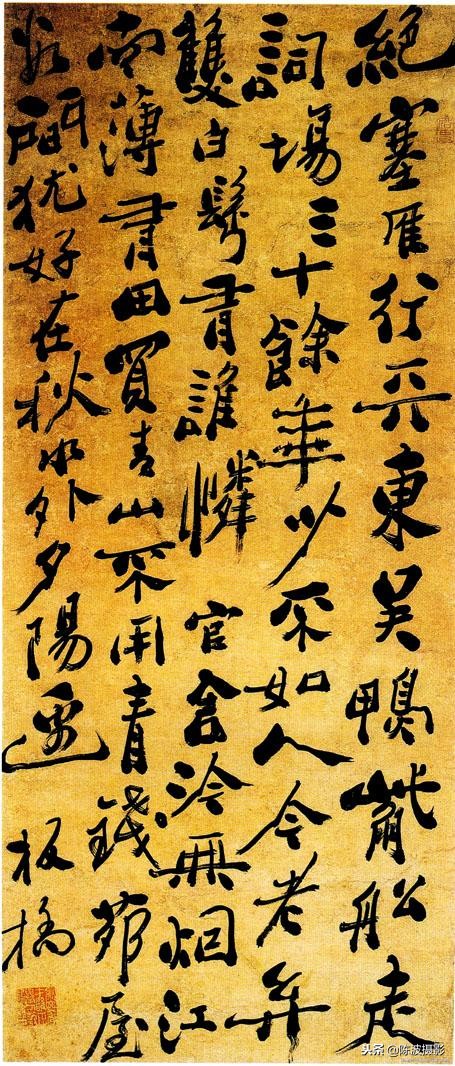 絕塞雁行天東吳鴨觜船走
詞場三十餘年少不如人今老矣
雙白鬢有誰憐官舍冷無烟江
南薄有田買青山不用青錢茆屋
數間犹好在秋水外夕陽邊
板橋
头条 @陈波摄影